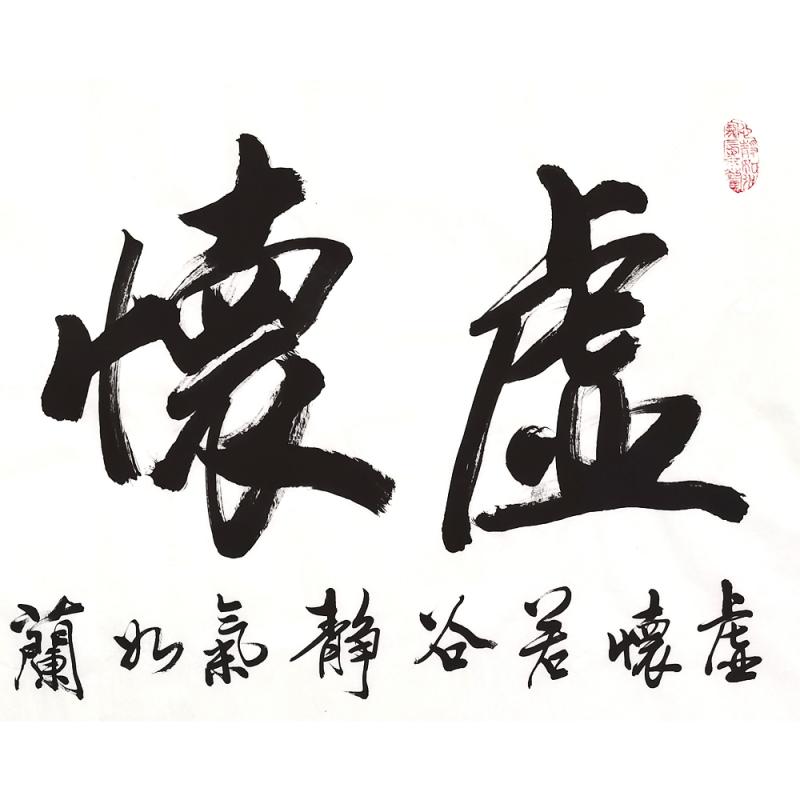 虛懷
虛懷若谷靜氣如蘭